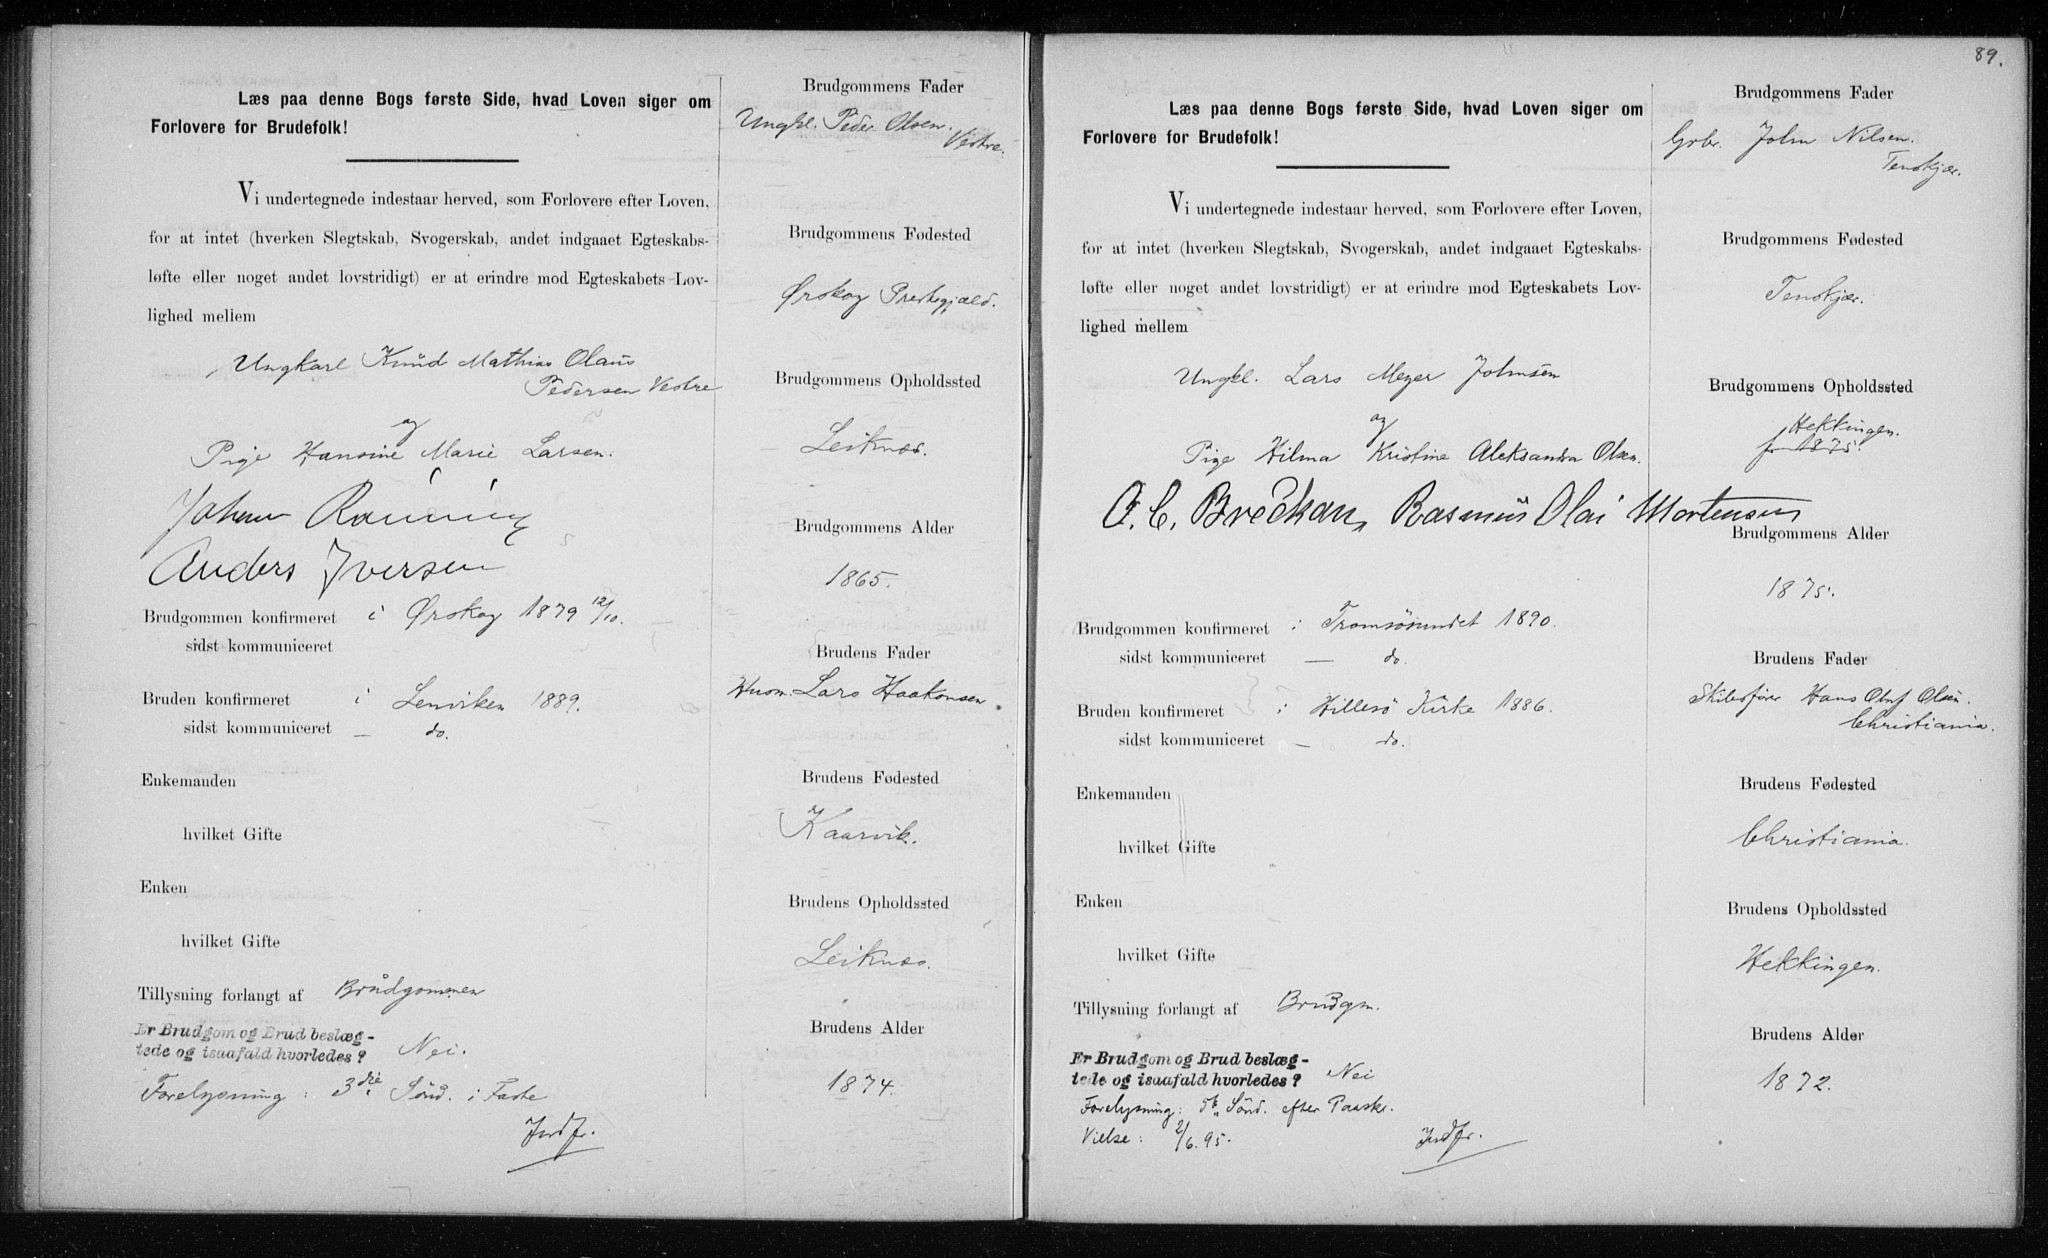 Læs paa denne Bogs første Side, hvad Loven siger om
Forlovere for Brudefolk!
Vi undertegnede indestaar herved, som Forlovere efter Loven,
for at intet (hverken Slegtskab, Svogerskab, andet indgaaet Egteskabs-
løfte eller noget andet lovstridigt) er at erindre mod Egteskabets Lov-
lighed mellem
Ungkarl Knud Mathias Olaus
Pedersen Vestre
og
Pige Hansine Marie Larsen.
Johan Rønning
Anders Iversen
Brudgommen konfirmeret i Ørskog 1879 12/10.
sidst kommuniceret
Bruden konfirmeret i Lenviken 1889.
sidst kommuniceret — do.
Enkemanden
hvilket Gifte
Enken
hvilket Gifte
Tillysning forlangt af Brudgommen
Er Brudgom og Brud beslæg-
tede og isaafald hvorledes? Nei.
Forelysning: 3die Sönd. i Faste
Indfr.
Brudgommens Fader
Ungkl. Peder Olsen.
Vestre.
Brudgommens Fødested
Ørskog Prestegjæld.
Brudgommens Opholdssted
Leiknes.
Brudgommens Alder
1865.
Brudens Fader
Husm. Lars Haakonsen
Brudens Fødested
Kaarvik.
Brudens Opholdssted
Leiknes.
Brudens Alder
1874.
89.
Læs paa denne Bogs første Side, hvad Loven siger om
Forlovere for Brudefolk!
Vi undertegnede indestaar herved, som Forlovere efter Loven,
for at intet (hverken Slegtskab, Svogerskab, andet indgaaet Egteskabs-
løfte eller noget andet lovstridigt) er at erindre mod Egteskabets Lov-
lighed mellem
Ungkl. Lars Meyer Johnsen
og
Pige Hilma Kristine Aleksandra Olsen.
O. C. Breckan, Rasmus Olai Mortensen
Brudgommen konfirmeret i Tromsøsundet 1890.
sidst kommuniceret — do.
Bruden konfirmeret i Hillesö Kirke 1886.
sidst kommuniceret — do.
Enkemanden
hvilket Gifte
Enken
hvilket Gifte
Tillysning forlangt af Brudgm.
Er Brudgom og Brud beslæg-
tede og isaafald hvorledes? Nei
Forelysning: 5te Sönd. efter Paaske.
Vielse: 2/6.95. Indfr.
Brudgommens Fader
Gbr. John Nilsen.
Tenskjær.
Brudgommens Fødested
Tenskjær.
Brudgommens Opholdssted
Hekkingen.
1875.
Brudgommens Alder
1875.
Brudens Fader
Skibsfører Hans Oluf Olsen.
Christiania.
Brudens Fødested
Christiania.
Brudens Opholdssted
Hekkingen.
Brudens Alder
1872.